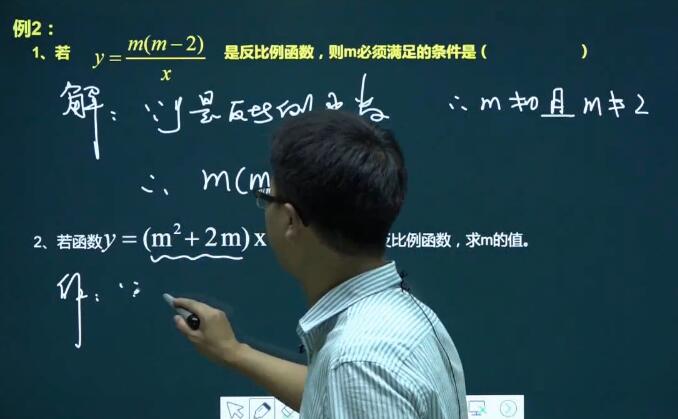 例2：
1、若 y = m(m−2)/x 是反比例函数，则m必须满足的条件是（ ）
解：∵y是反比例函数 ∴m≠0且m≠2
∴ m(m
2、若函数y = (m²+2m)x 反比例函数，求m的值。
解：∵